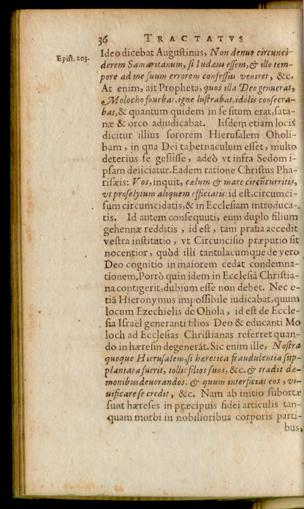 36 TRACTATVS
Epist. 203.
Ideo dicebat Augustinus, Non denuo circunci-
derem Samaritanum, si Iudæus essem, & illo tem-
pore ad me suum errorem confessus veniret, &c.
At enim, ait Propheta, quos illa Deo generat,
Molocho fouebat, igne lustrabat, idolis consecra-
bat, & quantum quidem in se situm erat, sata-
næ & orco adiudicabat. Iisdem etiam locis
dicitur illius sororem Hierusalem Oholi-
bam, in qua Dei tabernaculum esset, multo
deterius se gessisse, adeò vt infra Sedom i-
psam deiiciatur. Eadem ratione Christus Pha-
risæis: Vos, inquit, cælum & mare circũcurritis,
vt proselytum aliquem efficiatis. id est, circumci-
sum circumcidatis, & in Ecclesiam introduca-
tis. Id autem consequuti, eum duplo filium
gehennæ redditis, id est, tam praua accedit
vestra institutio, vt Circuncisio præputio sit
nocentior, quòd illi tantulacunque de vero
Deo cognitio in maiorem cedat condemna-
tionem. Porrò quin idem in Ecclesia Christia-
na contigerit, dubium esse non debet. Nec e-
tiã Hieronymus impossibile iudicabat, quum
locum Ezechielis de Ohola, id est de Eccle-
sia Israel generanti filios Deo & educanti Mo
loch ad Ecclesias Christianas referret quan-
do in hæresin degenerãt. Sic enim ille, Nostra
quoque Hierusalem, si hæretica fraudulentia sup-
plantata fuerit, tollit filios suos, &c. & tradit dæ-
monibus deuorandos, & quum interficiat eos, vi-
uificare se credit, &c. Nam ab initio subortæ
sunt hæreses in præcipuis fidei articulis tan-
quam morbi in nobilioribus corporis parti-
bus,